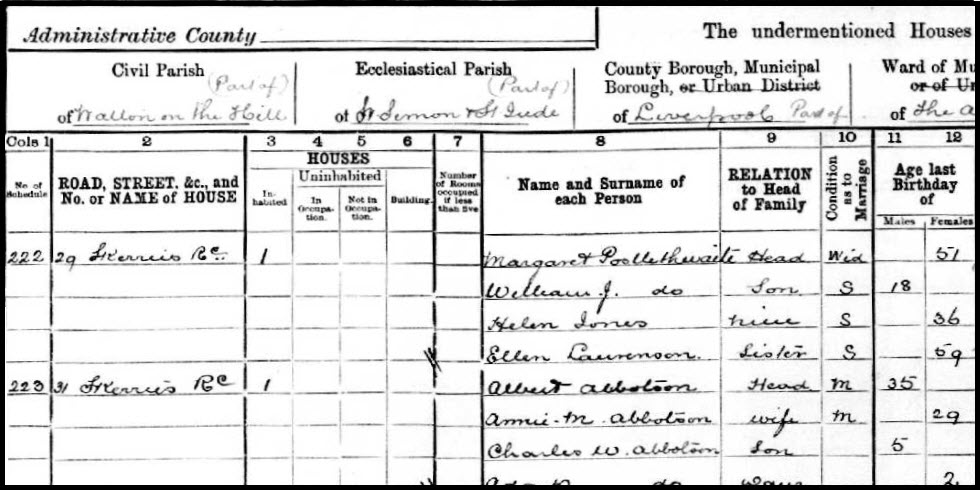 Administrative County
The undermentioned Houses
Civil Parish
(Part of)
of Walton on the Hill
Ecclesiastical Parish
(Part of)
of St Simon & St Jude
County Borough, Municipal
Borough, or Urban District
of Liverpool Part of
Ward of Mu
or of Ur
of The
Cols 1 2 3 4 5 6 7 8 9 10 11 12
No. of Schedule
ROAD, STREET, &c., and
No. or NAME of HOUSE
HOUSES
In-
habited
Uninhabited
In
Occupa-
tion.
Not in
Occupa-
tion.
Building.
Number
of Rooms
occupied
if less
than five
Name and Surname of
each Person
RELATION
to Head
of Family
Condition
as to
Marriage
Age last
Birthday
of
Males Females
222 29 Skerries Rd 1 Margaret Postlethwaite Head Wid 51
William J. do Son S 18
Helen Jones niece S 36
Ellen Laurenson. Sister S 59
223 31 Skerries Rd 1 Albert Abbotson Head M 35
Annie M. Abbotson wife M 29
Charles W. Abbotson Son 5
do 2